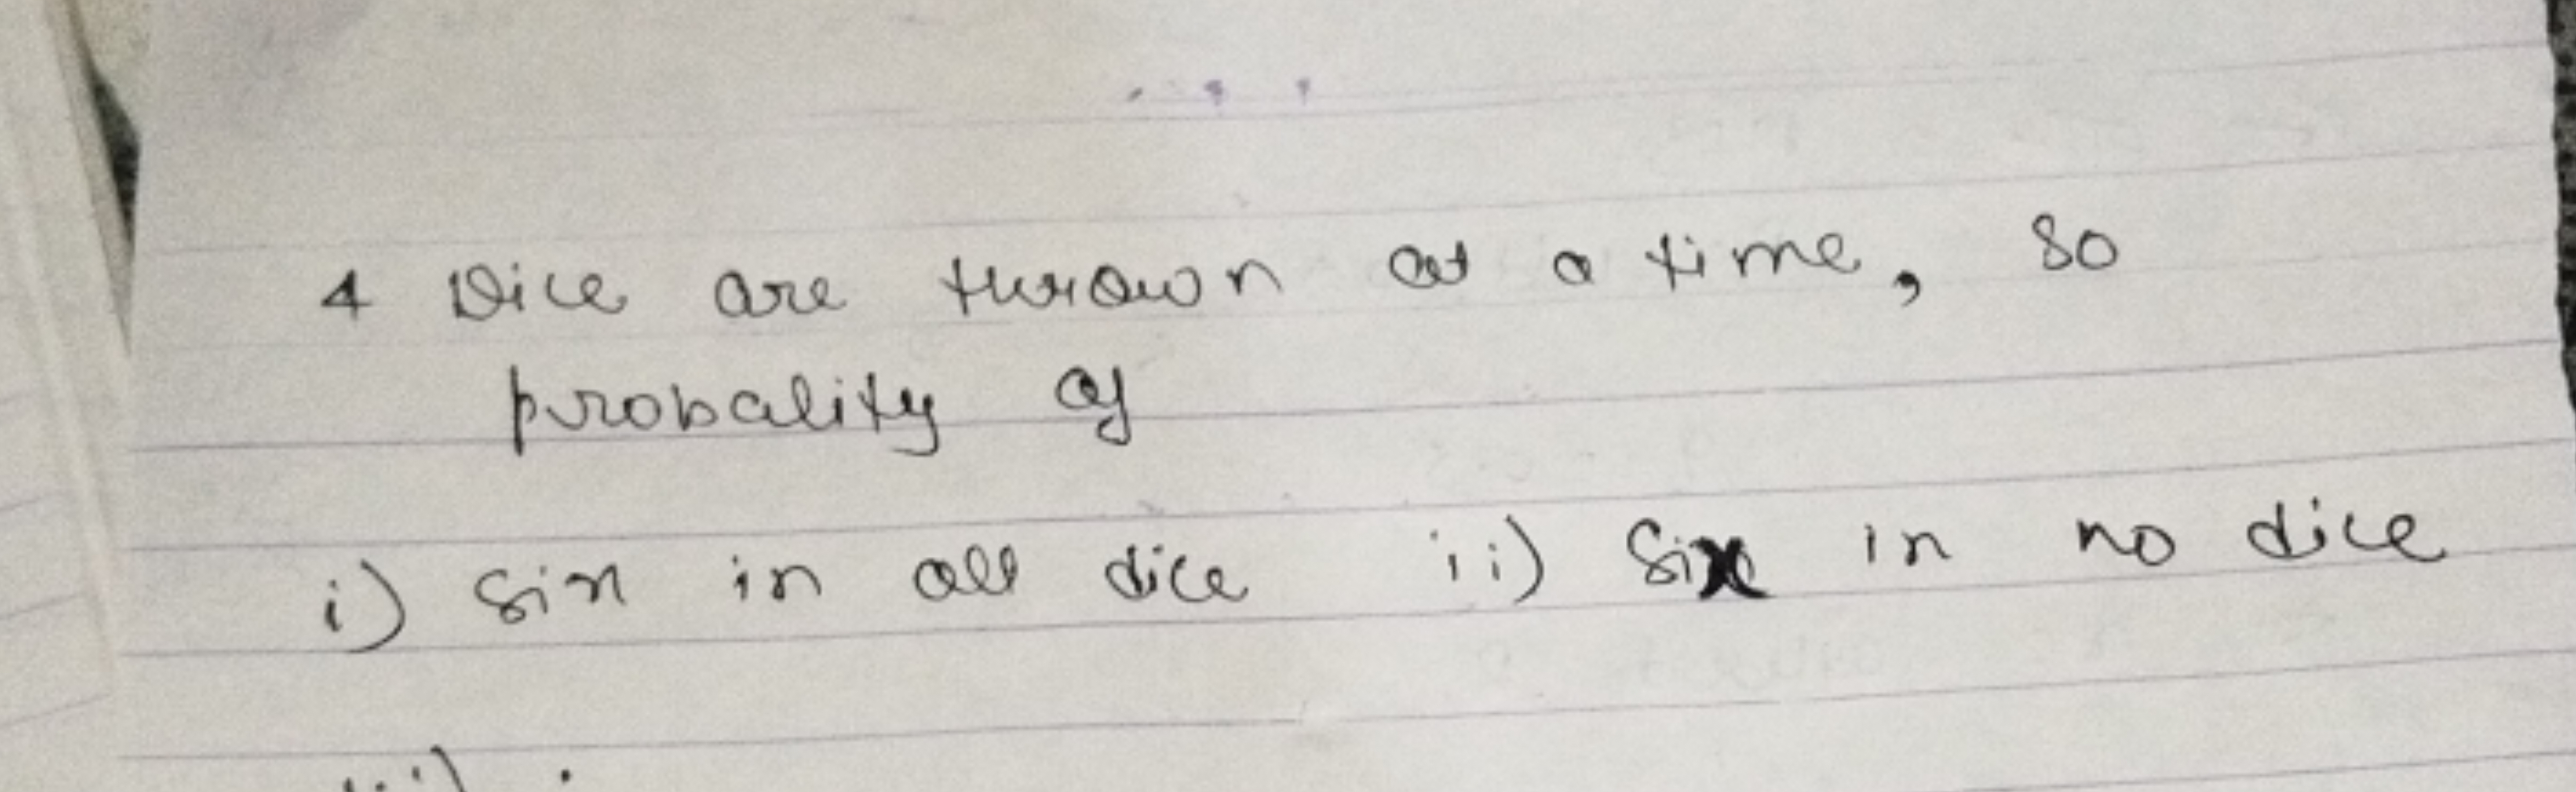 4 Dice are thrown at a time, so
probality of
i) six in all dice ii) six in no dice
iii)